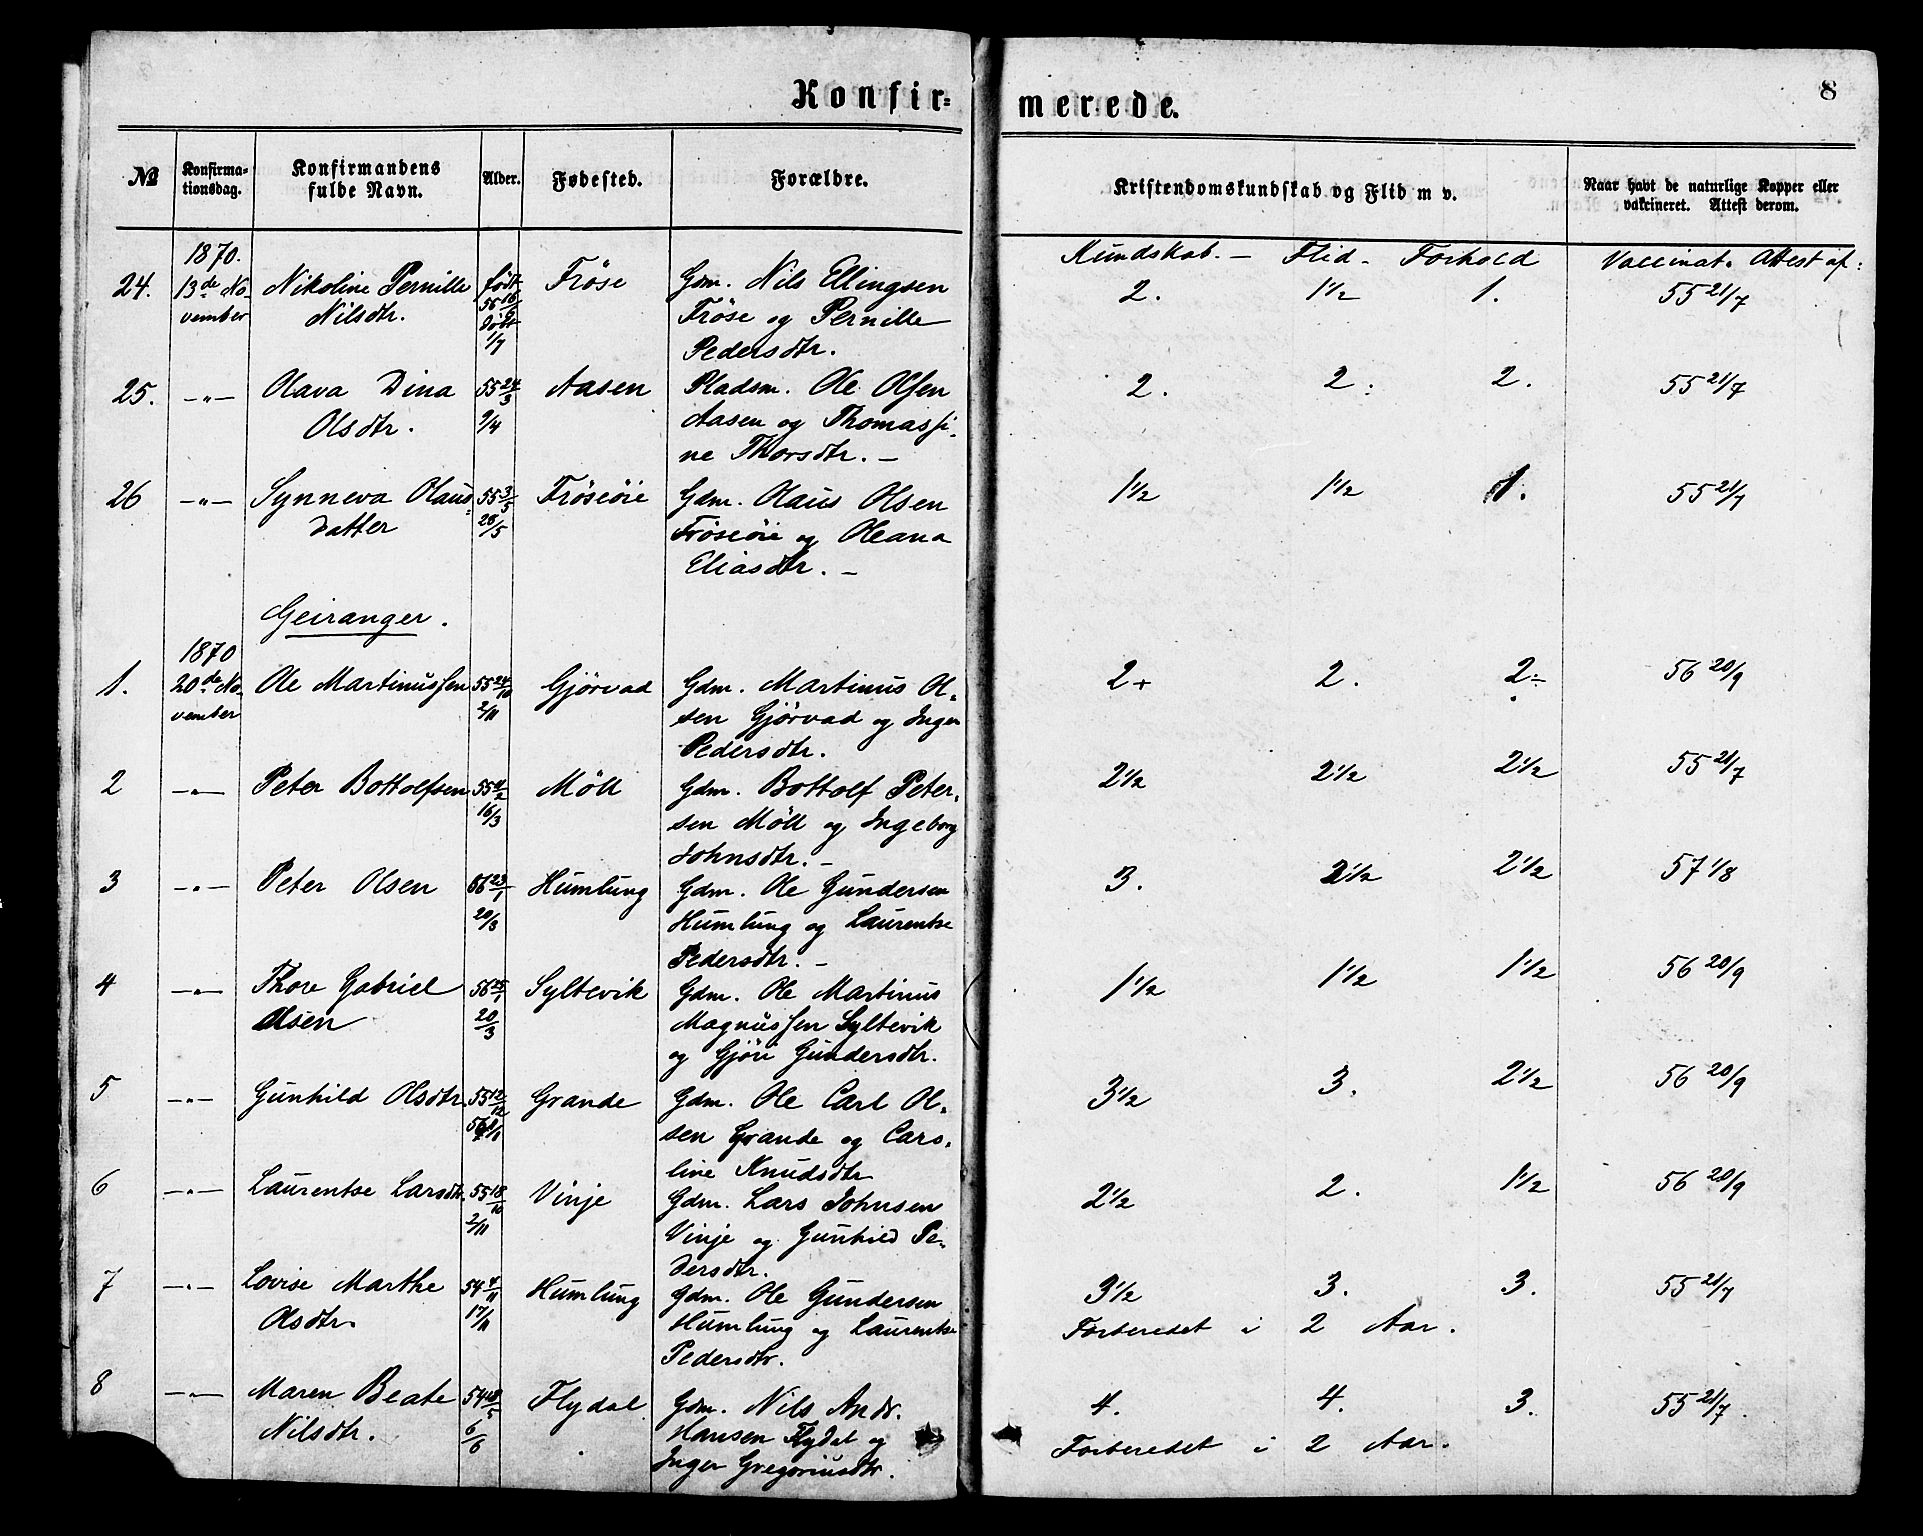 Konfir-
merede.
8
№ Konfirma-tionsdag. Konfirmandens fulde Navn. Alder. Fødested. Forældre. Kristendomskundskab og Flid m v. Naar havt de naturlige Kopper eller vakcineret. Attest derom.
1870. Kundskab. – Flid – Forhold Vaccinat. Attest af:
24. 13de No- Nikoline Pernille født Fröse Gdm. Nils Ellingsen 2. 1½ 1. 55 21/7
vember Nilsdtr. 55 Fröse og Pernille
døbt 1/7 Pedersdtr.
25. –„– Olava Dina 55 24/3 Aasen Pladsm. Ole Olsen 2. 2. 2. 55 21/7
Olsdtr. 9/4 Aasen og Thomassi-
ne Thorsdtr. –
26 –„– Synneva Olaus- 55 3/5 Fröseöie Gdm. Olaus Olsen 1½ 1½ 1. 55 21/7
datter 28/5 Fröseöie og Oleana
Eliasdtr. –
Geiranger.
1870
1. 20de No- Ole Martinussen 55 24/10 Gjörvad Gdm. Martinus Ol- 2+ 2. 2÷ 56 20/9
vember 2/11 sen Gjörvad og Inger
Pedersdtr.
2 –„– Peter Bottolfsen 55 4/2 Möll Gdm. Bottolf Peter- 2½ 2½ 2½ 55 21/7
16/3 sen Möll og Ingeborg
Johnsdtr. –
3 –„– Peter Olsen 56 23/1 Humlung Gdm. Ole Gundersen 3. 2½ 2½ 57 1/8
20/3 Humlung og Laurentse
Pedersdtr. –
4 –„– Thore Gabriel 56 25/1 Syltevik Gdm. Ole Martinus 1½ 1½ 1½ 56 20/9
Olsen 20/3 Magnussen Syltevik
og Gjöri Gundersdtr.
5 –„– Gunhild Olsdtr. 55 12/12 Grande Gdm. Ole Carl Ol- 3½ 3. 2½ 56 20/9
56 sen Grande og Caro-
line Knudsdtr
6 –„– Laurentse Larsdtr. 55 18/10 Vinje Gdm. Lars Johnsen 2½ 2. 1½ 56 20/9
2/11 Vinje og Gunhild Pe-
dersdtr.
7 –„– Lovise Marthe 54 4/11 Humlung Gdm. Ole Gundersen 3½ 3. 3. 55 21/7
Olsdtr. 17/11 Humlung og Laurentse Forberedet i 2 Aar.
Pedersdtr.
8 –„– Maren Beate 54 18/5 Flydal Gdm. Nils Andr. 4. 4. 3. 55 21/7
Nilsdtr. 6/6 Hansen Flydal og Forberedet i 2 Aar.
Inger Gregoriusdtr.